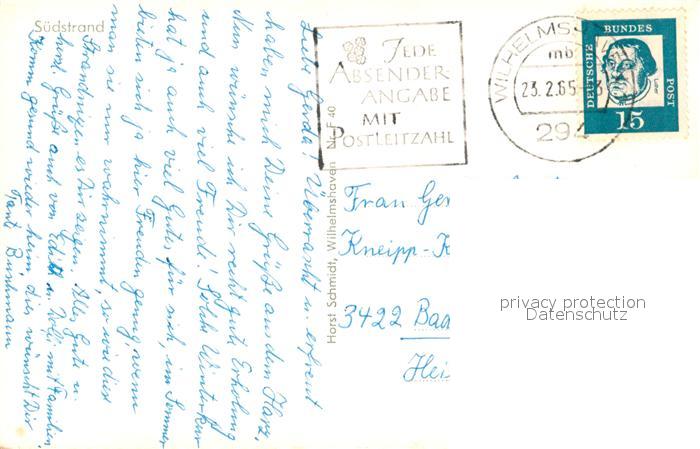 Südstrand
Liebe Gerda! Überrascht u. erfreut
haben mich Deine Grüße aus dem Harz.
Nun wünsche ich Dir recht gute Erholung
und auch viel Freude! Solche Winterkur
hat ja auch viel Gutes für sich, im Sommer
bieten sich ja hier Freuden genug, wenn
man sie nur wahrnimmt, so wie diese
Strandnixen es Dir sagen. Alles Gute u.
herzl. Grüße auch von Edith u. Wolf, mit Familien.
Komm gesund wieder heim, dies wünscht Dir
Tante Buschmann
Horst Schmidt, Wilhelmshaven Nr. F 40
JEDE
ABSENDER
ANGABE
MIT
POSTLEITZAHL
WILHELMS
23.2.65
294
DEUTSCHE BUNDESPOST
15
Frau Ger
Kneipp-K
3422 Bad
Hei
privacy protection
Datenschutz